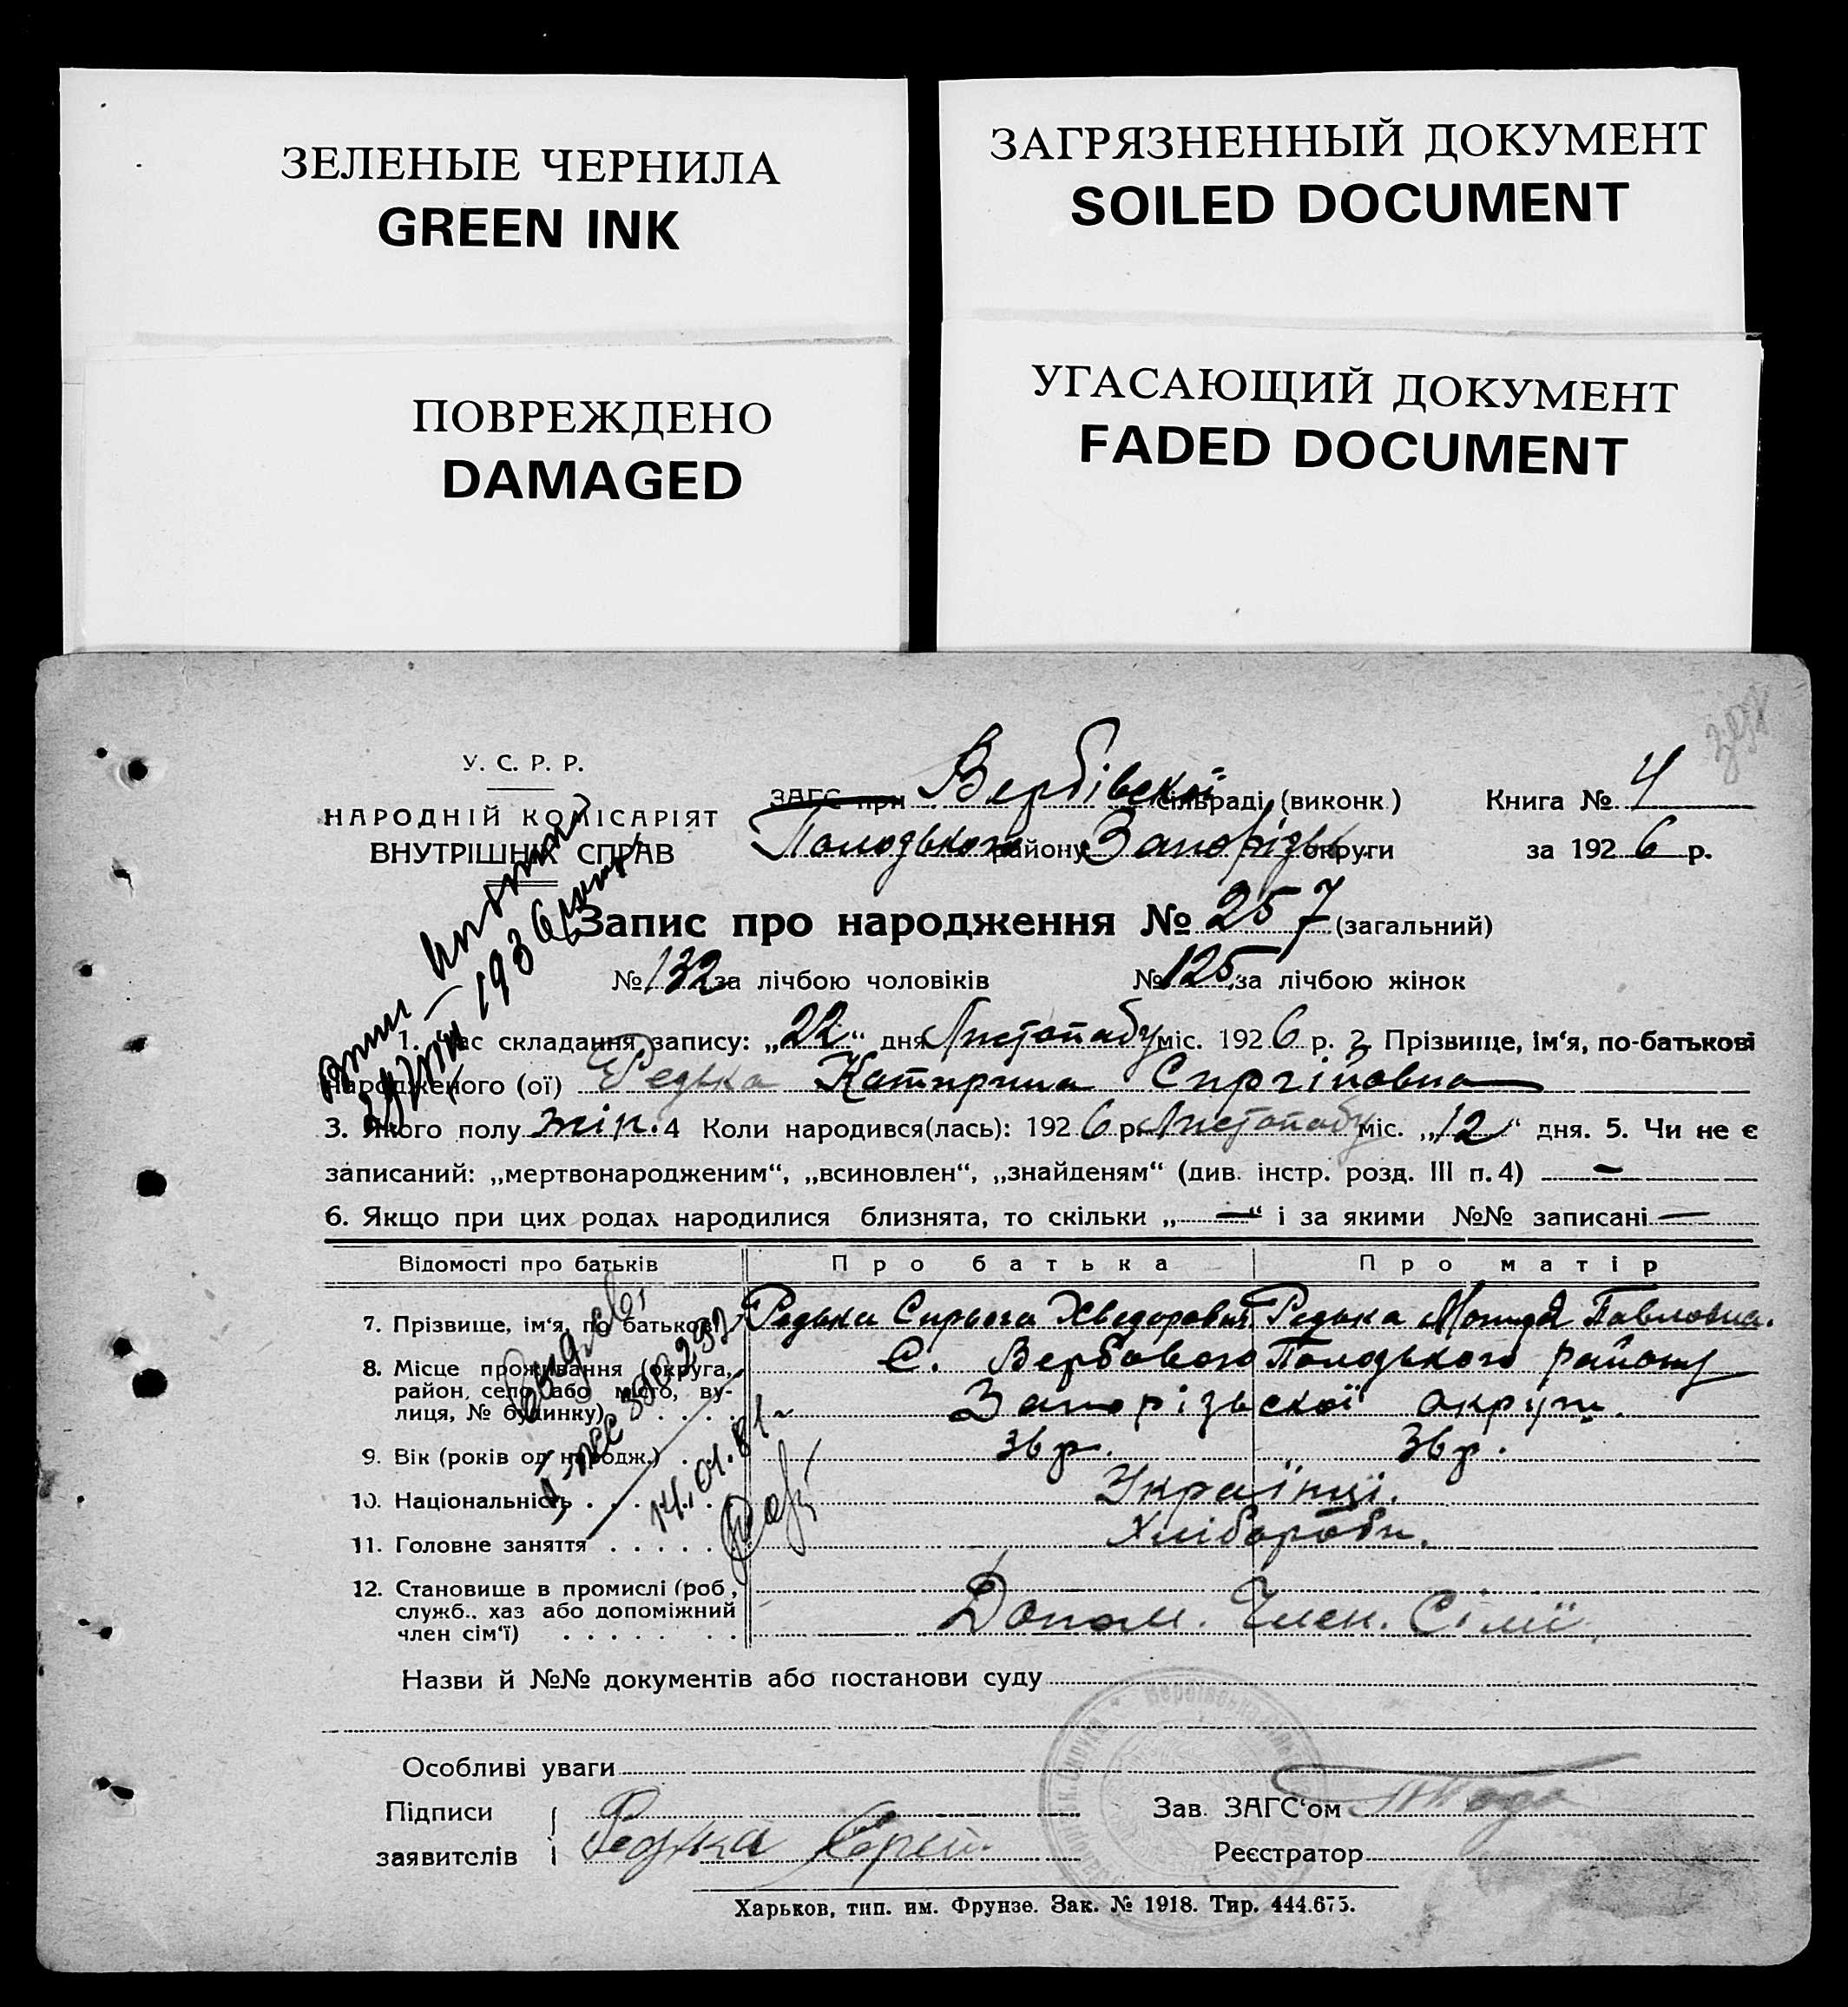 ЗЕЛЕНЫЕ ЧЕРНИЛА
GREEN INK
ЗАГРЯЗНЕННЫЙ ДОКУМЕНТ
SOILED DOCUMENT
ПОВРЕЖДЕНО
DAMAGED
УГАСАЮЩИЙ ДОКУМЕНТ
FADED DOCUMENT
У. С. Р. Р.
НАРОДНІЙ КОМІСАРІЯТ
ВНУТРІШНІХ СПРАВ
ЗАГС при Вербівской сільраді (виконк.) Книга № 4
Пологського району Запорізьк. округи за 1926 р.
Запис про народження № 257 (загальний)
№ 132 за лічбою чоловіків № 125 за лічбою жінок
1. Час складання запису: „22“ дня Листопаду міс. 1926 р. 2. Прізвище, ім'я, по-батькові
народженого (ої) Редька Катирина Сиргійовна
3. Якого полу жін. 4 Коли народився(лась): 1926 р. Листопаду міс. „12“ дня. 5. Чи не є
записаний: „мертвонародженим“, „всиновлен“, „знайденям“ (див. інстр. розд. III п. 4) —
6. Якщо при цих родах народилися близнята, то скільки „—“ і за якими №№ записані —
Відомості про батьків Про батька Про матір
7. Прізвище, ім'я, по батькові Редька Сирьога Хведорович Редька Мотидя Павловна.
8. Місце проживання (округа, район, село або місто, вулиця, № будинку) С. Вербового Пологського району
Запорізьскої округи.
9. Вік (років од народж.) 36 р. 36 р.
10. Національність Українці.
11. Головне заняття Хлібороби.
12. Становище в промислі (роб,
служб., хаз або допоміжний
член сім'ї) Допом. Член. Сімії.
14.01.81
Назви й №№ документів або постанови суду
Особливі уваги
Підписи
заявителів Редька
Зав. ЗАГС'ом
Реєстратор
Харьков, тип. им. Фрунзе. Зак. № 1918. Тир. 444.675.